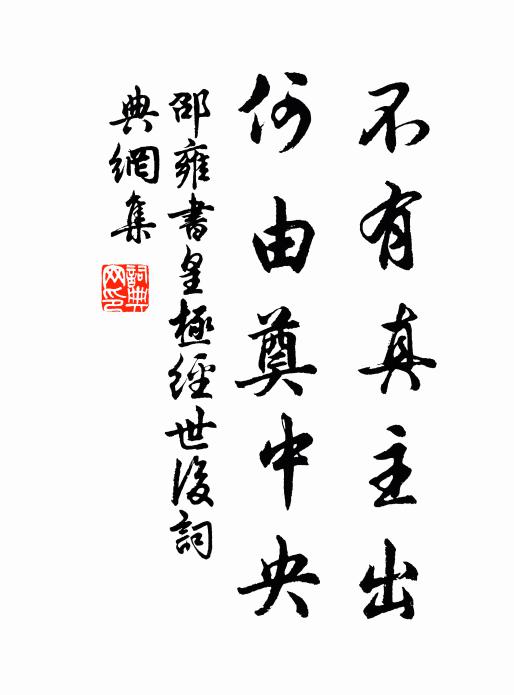 不有真主出
何由奠中央
邵雍書皇極經世後詞
典網集
詞典網印